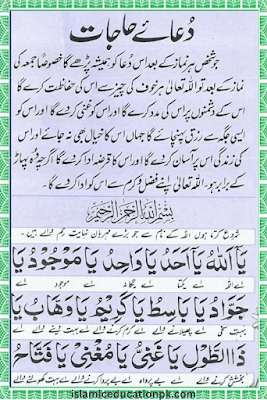 دُعائے حاجات
جو شخص ہر نماز کے بعد اس دعا کو ہمیشہ پڑھے گا خصوصاً جمعہ کی
نماز کے بعد تو اللہ تعالیٰ ہر خوف کی چیز سے اس کی حفاظت کرے گا
اس کے دشمنوں پر اس کی مدد کرے گا اور اس کو غنی کرے گا اور اس کو
ایسی جگہ سے رزق پہنچائے گا جہاں اس کا خیال بھی نہ جائے اور اس
کی زندگی اس پر آسان کرے گا اور اس کا قرضہ ادا کرے گا اگرچہ وہ پہاڑ
کے برابر ہو۔ اللہ تعالیٰ اپنے فضل و کرم سے اس کو ادا کر دے گا۔
بِسْمِ اللهِ الرَّحْمٰنِ الرَّحِيْمِ
شروع کرتا ہوں اللہ کے نام سے جو بڑے مہربان نہایت رحم والے ہیں۔
يَآ اَللهُ يَآ اَحَدُ يَا وَاحِدُ يَا مَوْجُودُ يَا
اے اللہ اے یکتا اے یگانہ اے موجود اے
جَوَّادُ يَا بَاسِطُ يَا كَرِيْمُ يَا وَهَّابُ يَا
بہت سخی اے پھیلانے والے اے کرم کرنے والے اے بہت دینے والے اے
ذَا الطَّوْلِ يَا غَنِيُّ يَا مُغْنِيُ يَا فَتَّاحُ
بخشش کرنے والے اے بے پرواہ اے بے پرواہ کرنے والے اے بہت کھولنے والے
islamiceducationpk.com